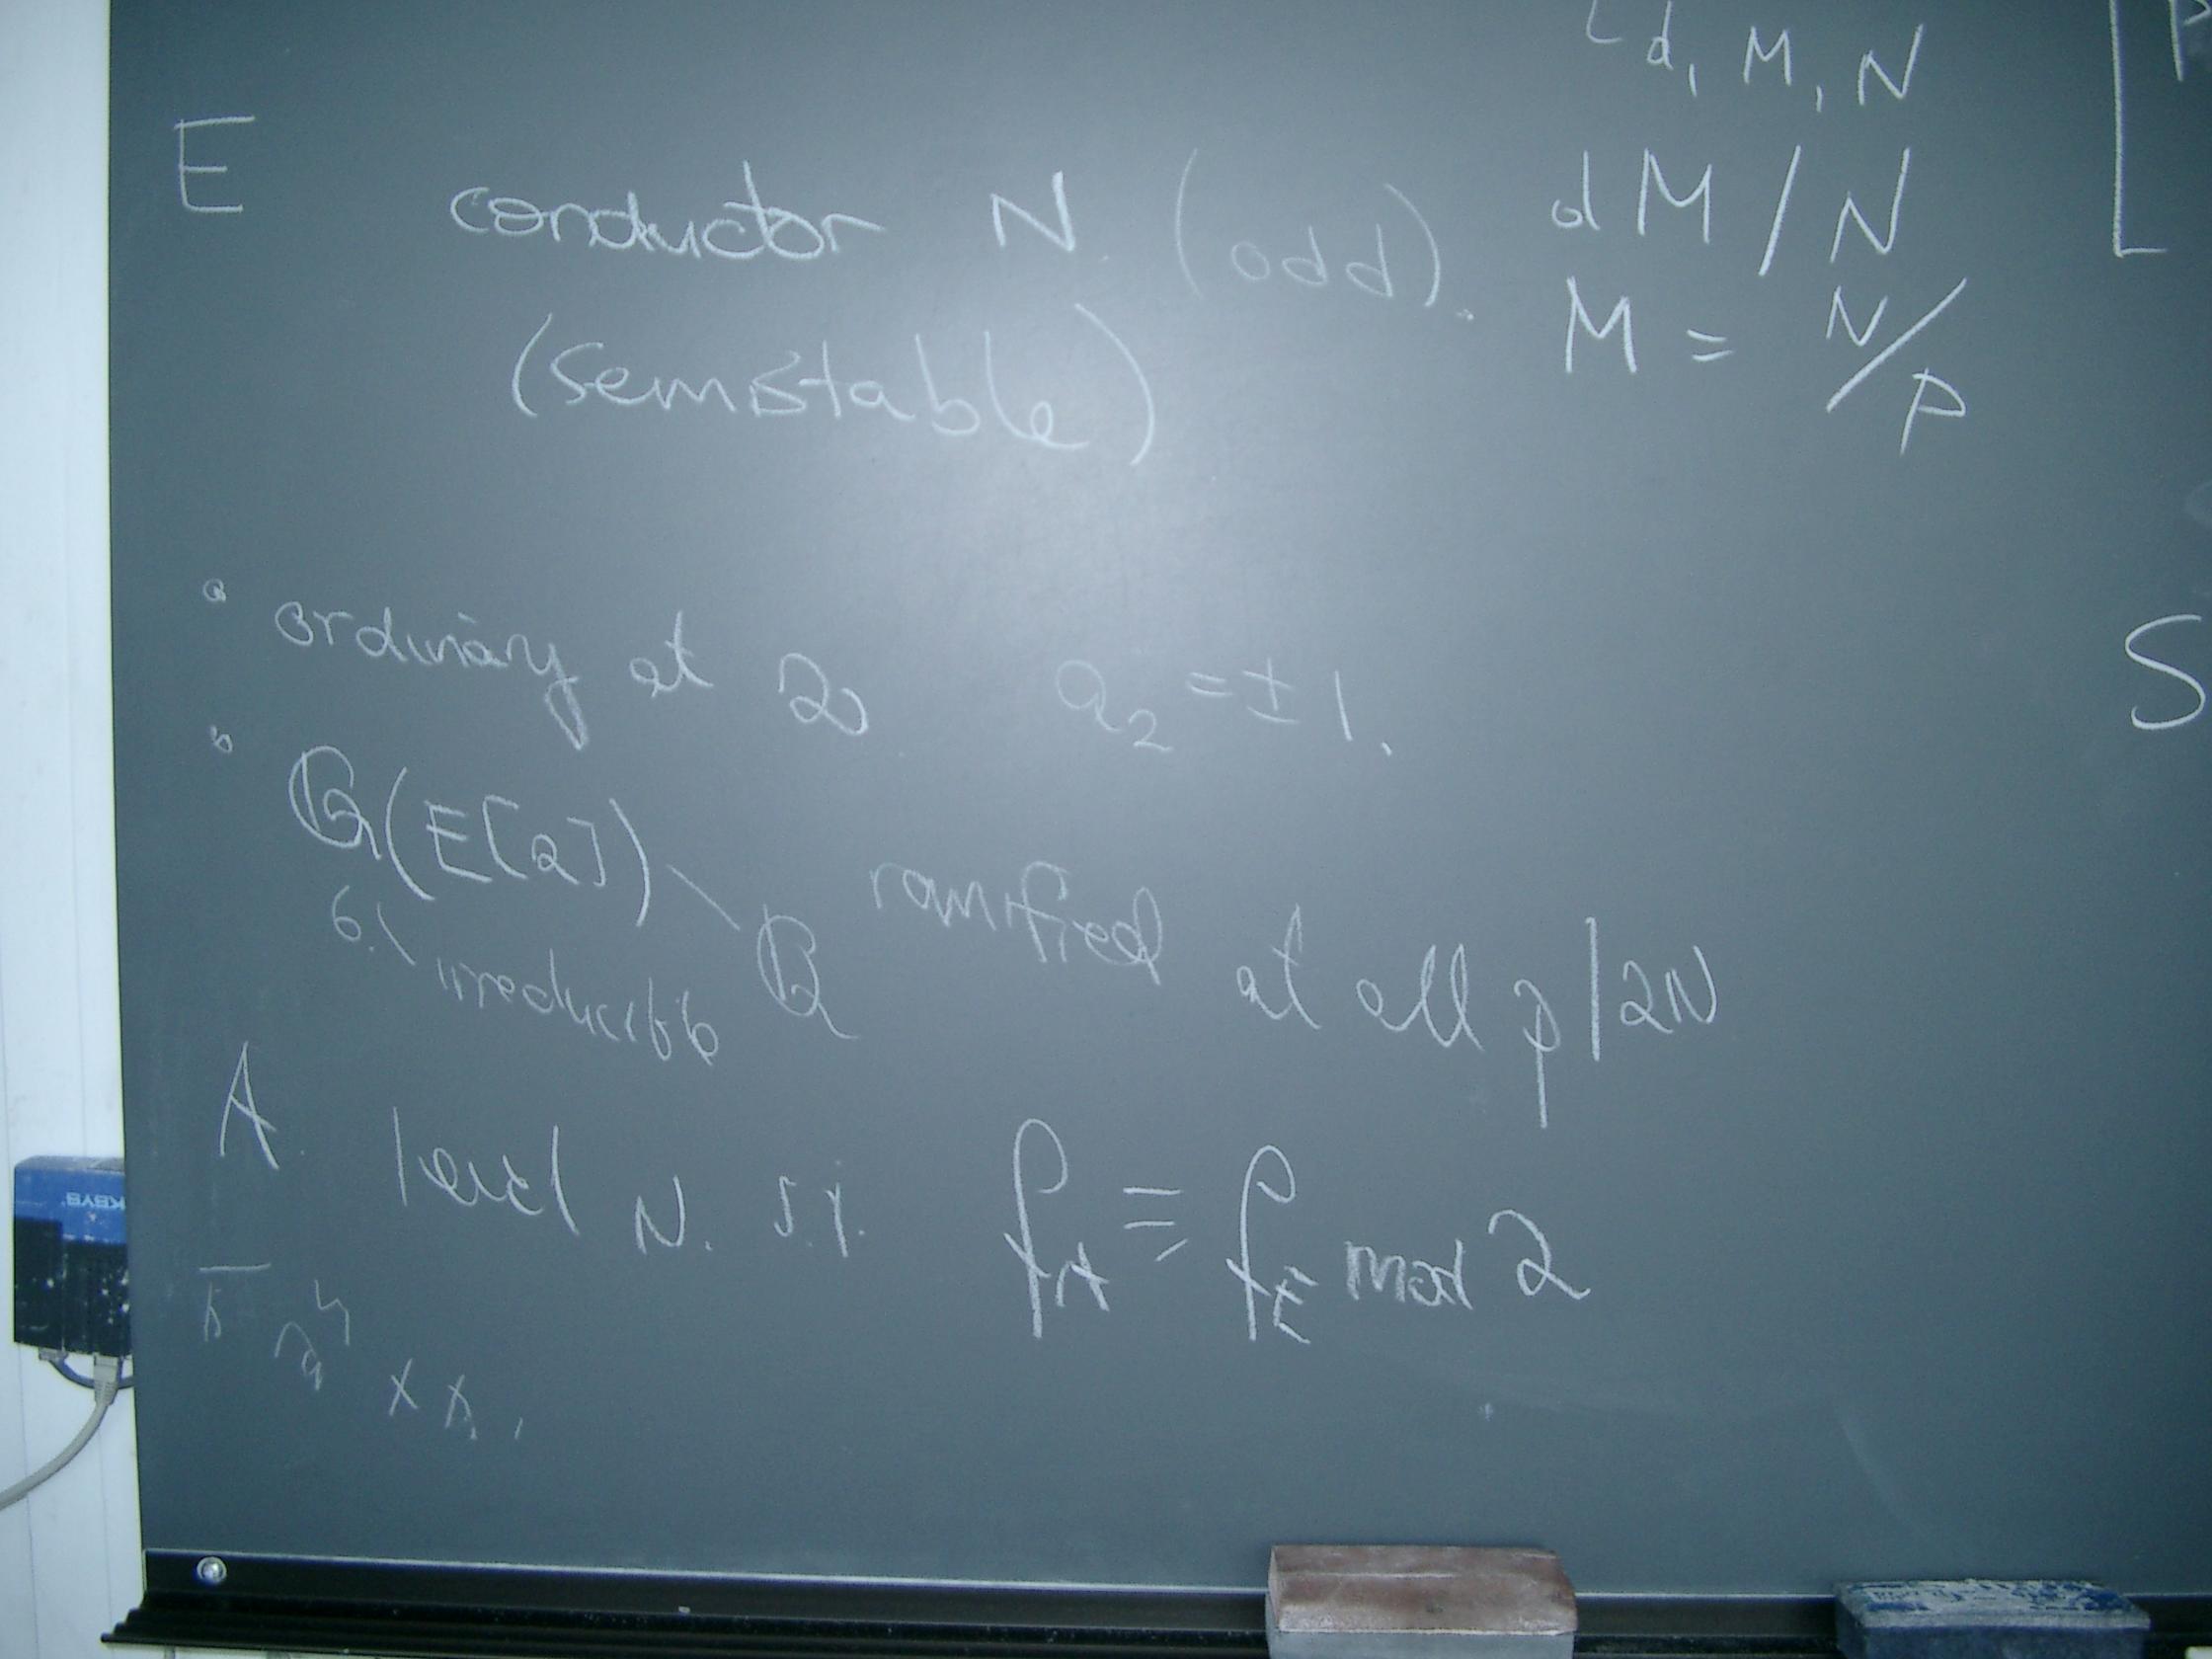 E conductor N (odd).
(semistable)
d, M, N
dM / N
M = N/p
ordinary at 2 a₂ = ±1.
Q(E[2]) \ Q ramified at all p | 2N
6.\ irreducible
A level N. s.t. f_A ≡ f_E mod 2
S